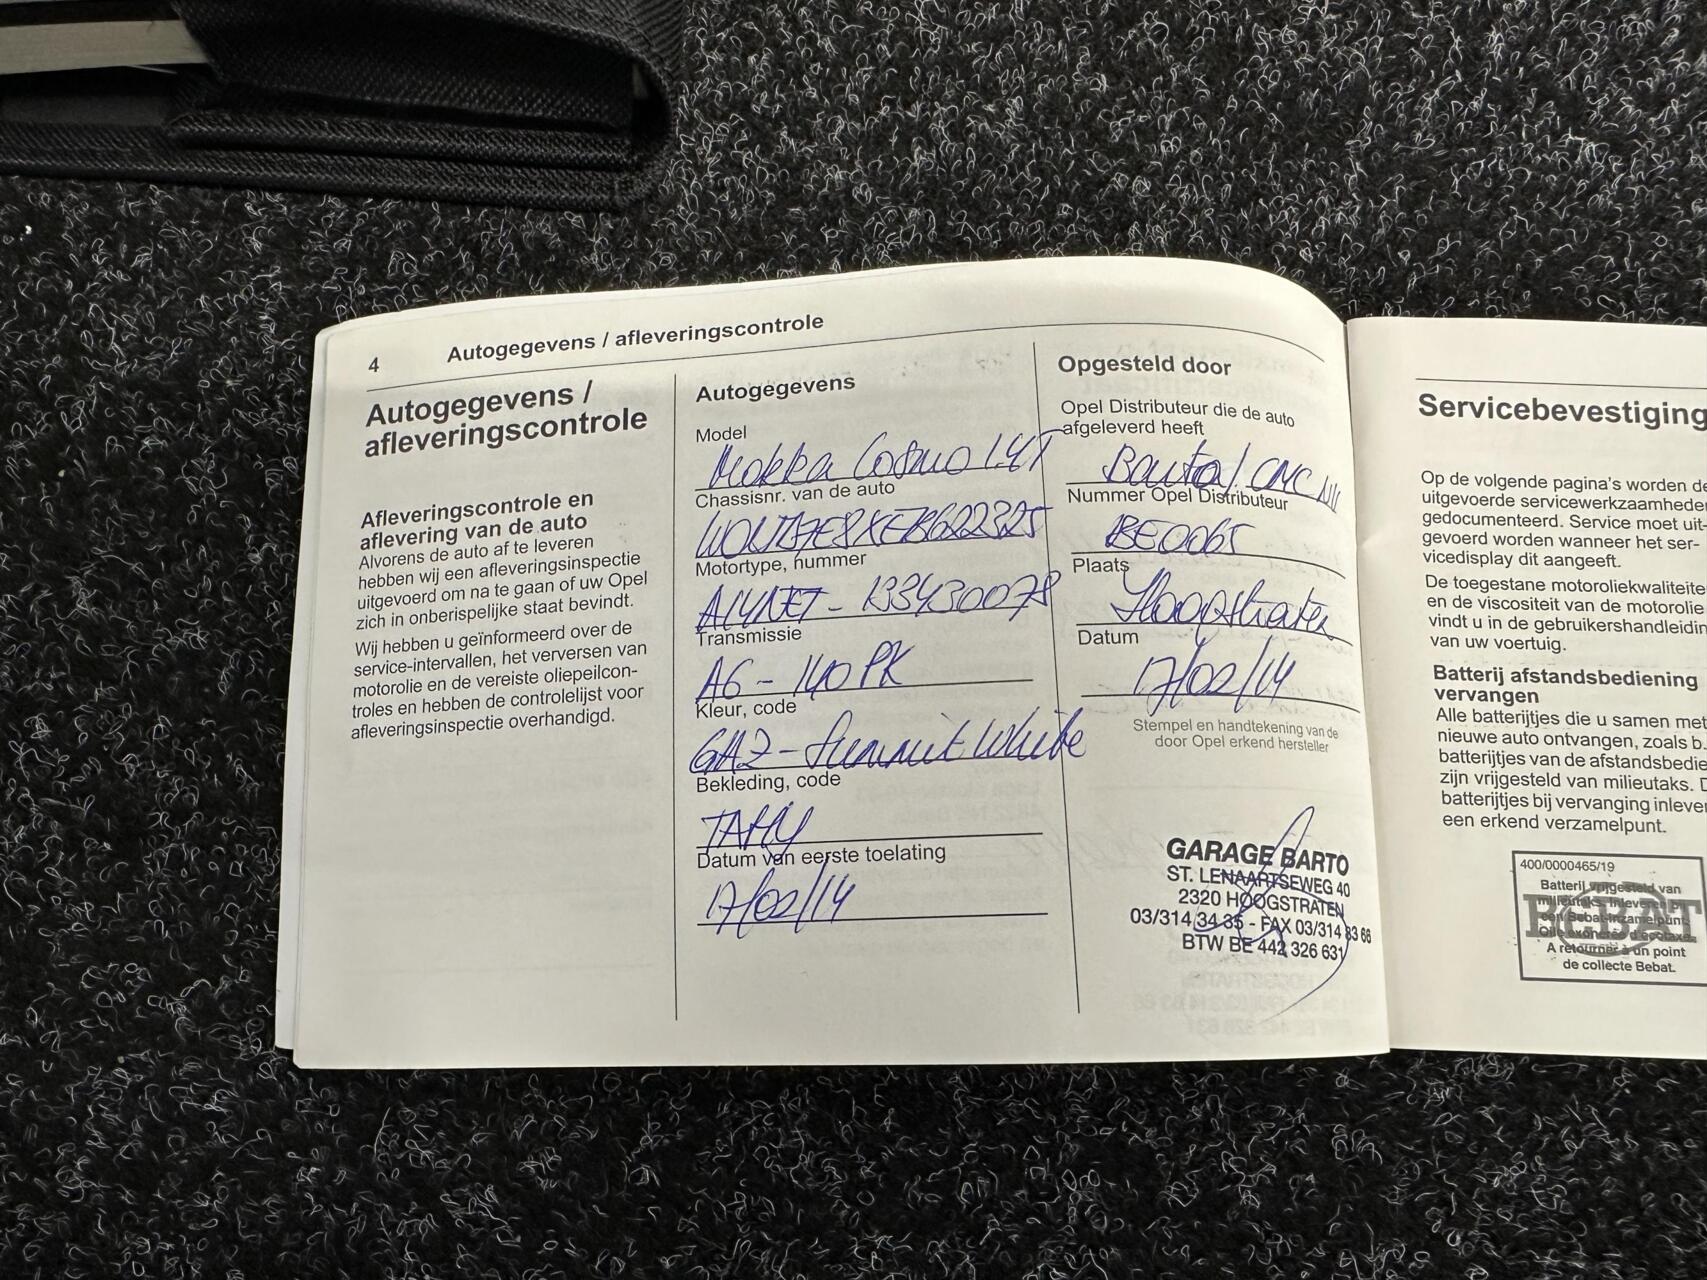 4 Autogegevens / afleveringscontrole
Autogegevens /
afleveringscontrole
Afleveringscontrole en
aflevering van de auto
Alvorens de auto af te leveren
hebben wij een afleveringsinspectie
uitgevoerd om na te gaan of uw Opel
zich in onberispelijke staat bevindt.
Wij hebben u geïnformeerd over de
service-intervallen, het verversen van
motorolie en de vereiste oliepeilcon-
troles en hebben de controlelijst voor
afleveringsinspectie overhandigd.
Autogegevens
Model
Mokka Cosmo 1.4T
Chassisnr. van de auto
Motortype, nummer
A14NET - 133430078
Transmissie
A6 - 140 PK
Kleur, code
GAZ - Summit White
Bekleding, code
TAHY
Datum van eerste toelating
17/02/14
Opgesteld door
Opel Distributeur die de auto
afgeleverd heeft
Nummer Opel Distributeur
BE0065
Plaats
Hoogstraten
Datum
17/02/14
Stempel en handtekening van de
door Opel erkend hersteller
GARAGE BARTO
ST. LENAARTSEWEG 40
2320 HOOGSTRATEN
03/314 34 35 - FAX 03/314 83 66
BTW BE 442 326 631
Servicebevestiging
Op de volgende pagina's worden de
uitgevoerde servicewerkzaamhede
gedocumenteerd. Service moet uit-
gevoerd worden wanneer het ser-
vicedisplay dit aangeeft.
De toegestane motoroliekwaliteite
en de viscositeit van de motorolie
vindt u in de gebruikershandleidin
van uw voertuig.
Batterij afstandsbediening
vervangen
Alle batterijtjes die u samen met
nieuwe auto ontvangen, zoals b.
batterijtjes van de afstandsbedie
zijn vrijgesteld van milieutaks. D
batterijtjes bij vervanging inlever
een erkend verzamelpunt.
400/0000465/19
BEBAT
Batterij vrijgesteld van
milieutaks. Inleveren bij
een Bebat-inzamelpunt.
Pile exonérée d'écotaxe.
A retourner à un point
de collecte Bebat.